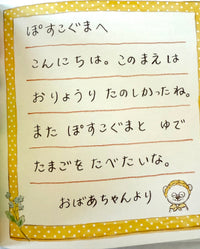 ぽすこぐまへ
こんにちは。このまえは
おりょうりたのしかったね。
またぽすこぐまと ゆで
たまごをたべたいな。
おばあちゃんより